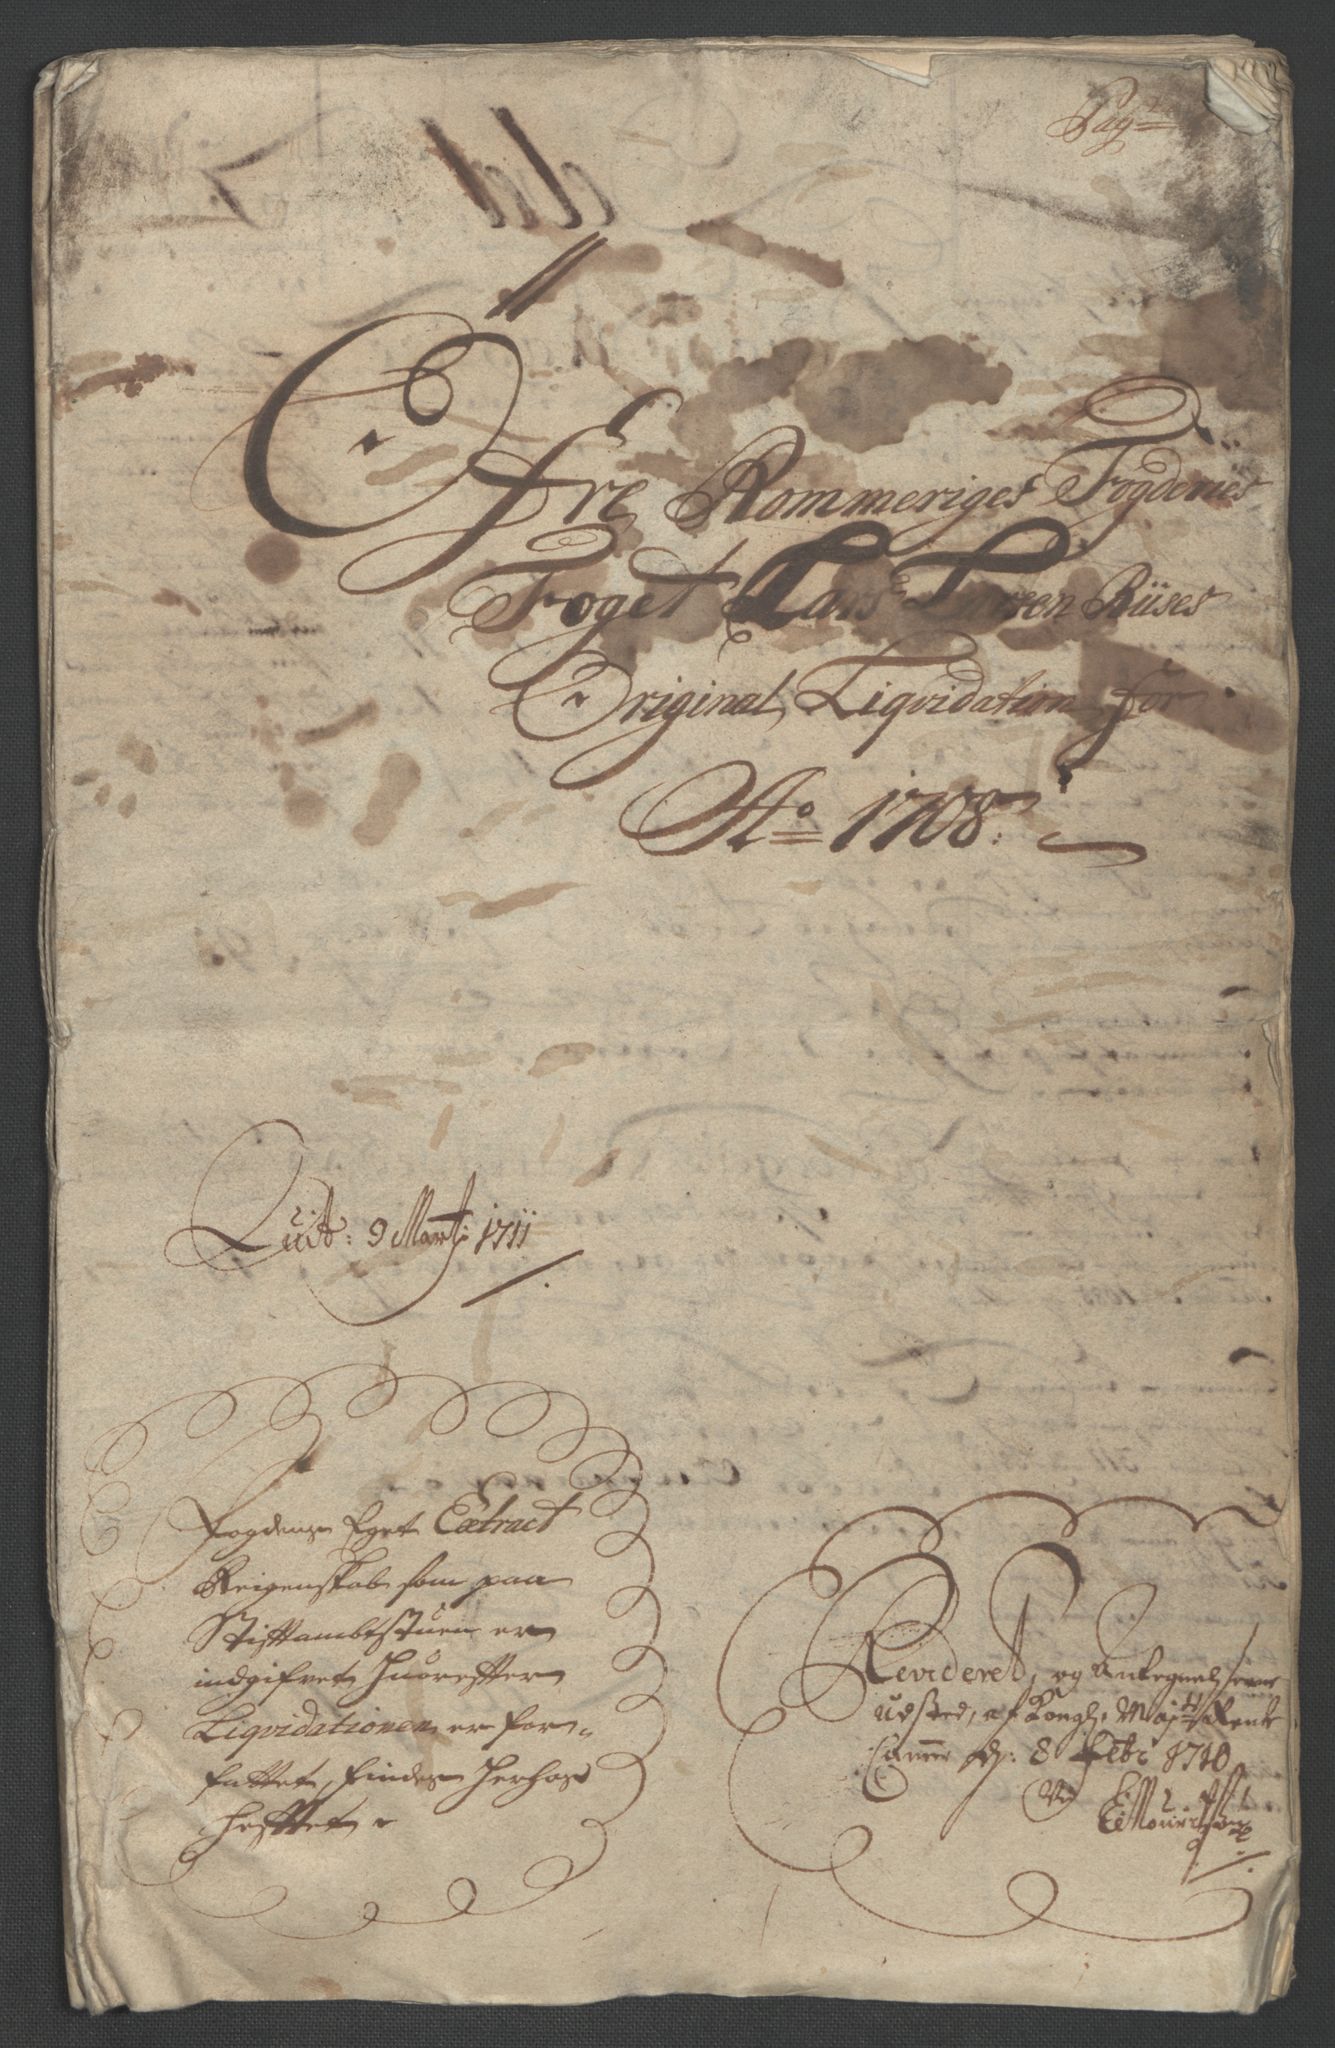 Pag
Øfre Rommeriges Fogderies
Foget Lars Larsen Riises
Original Liqvidation for
Ao 1708.
Quit: 9 Marti 1711
Fogdens Eget Extract
Reigenskab som paa
Stiftambtstuen er
indgifvet hvorefter
Liqvidationen er for-
fattet, findes herhos
heftet
Revideret, og Antegnelserne
udsted, af Kongl. Maj: Rente
Cammer d: 8 Febr 1710